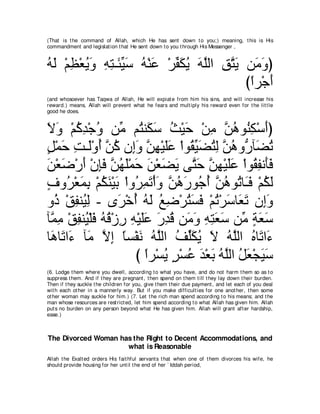 (That is the command of Allah, which He has sent down to you;) meaning, this is His
commandment and legislation that He sent down to you through His Messenger .
وَمَن يَتَّقِ اللَّهَ يُكَفِّرْ عَنْهُ سَيِّئَـتِهِ وَيُعْظِمْ لَهُ
أَجْراً)
(and whosoever has Taqwa of Allah, He will expiate from him his sins, and will increase his
reward.) means, Allah will prevent what he fears and multiply his reward even for the little
good he does.
(أَسْكِنُوهُنَّ مِنْ حَيْثُ سَكَنتُم مِّن وُجْدِكُمْ وَلاَ
تُضَآرُّوهُنَّ لِتُضَيِّقُواْ عَلَيْهِنَّ وَإِن كُنَّ أُوْلَـتِ حَمْلٍ
فَأَنفِقُواْ عَلَيْهِنَّ حَتَّى يَضَعْنَ حَمْلَهُنَّ فَإِنْ أَرْضَعْنَ
لَكُمْ فَـَاتُوهُنَّ أُجُورَهُنَّ وَأْتَمِرُواْ بَيْنَكُمْ بِمَعْرُوفٍ
وَإِن تَعَاسَرْتُمْ فَسَتُرْضِعُ لَهُ أُخْرَى - لِيُنفِقْ ذُو
سَعَةٍ مِّن سَعَتِهِ وَمَن قُدِرَ عَلَيْهِ رِزْقُهُ فَلْيُنفِقْ مِمَّآ
ءَاتَاهُ اللَّهُ لاَ يُكَلِّفُ اللَّهُ نَفْساً إِلاَّ مَآ ءَاتَاهَا
سَيَجْعَلُ اللَّهُ بَعْدَ عُسْرٍ يُسْراً )
(6. Lodge them where you dwell, according to what you have, and do not harm them so as to
suppress them. And if they are pregnant, then spend on them till they lay down their burden.
Then if they suckle the children for you, give them their due payment, and let each of you deal
with each other in a mannerly way. But if you make difficulties for one another, then some
other woman may suckle for him.) (7. Let the rich man spend according to his means; and the
man whose resources are restricted, let him spend according to what Allah has given him. Allah
puts no burden on any person beyond what He has given him. Allah will grant after hardship,
ease.)
The Divorced Woman has the Right to Decent Accommodations, and
what is Reasonable
Allah the Exalted orders His faithful servants that when one of them divorces his wife, he
should provide housing for her until the end of her `Iddah period,